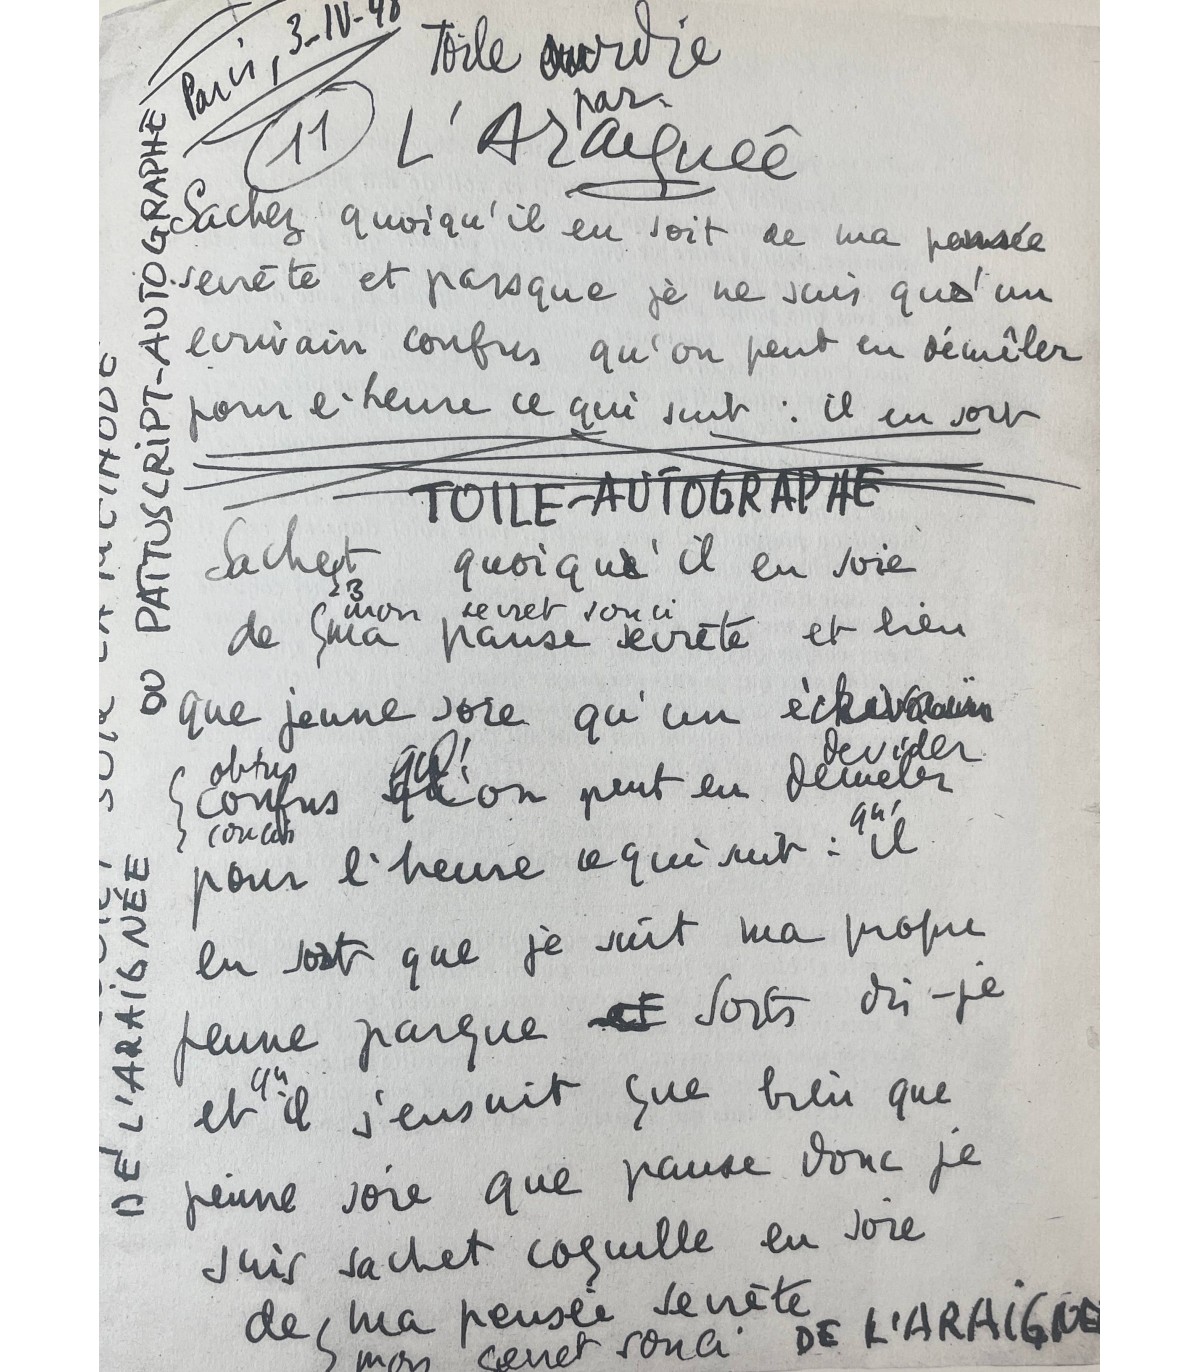 Paris, 3-IV-48
Toile ourdie
par
11
L'Araignée
Sachez quoiqu'il en soit de ma pensée
secrête et parsque je ne suis qu'un
ecrivain confus qu'on peut en démêler
pour l'heure ce qui suit : il en sort
TOILE-AUTOGRAPHE
Sachet quoiqu'il en soie
mon secret souci
de ma pause secrête et bien
que jeune soie qu'un
devider
obtus qu'
confus qu'on peut en demeler
qu'
pour l'heure ce qui suit : il
en sort que je suit ma propre
jeune parque et sorts dis-je
qu
et il s'ensuit que bien que
jeune soie que pause donc je
suis sachet coquille en soie
de ma pensée secrête
mon secret souci
DE L'ARAIGNÉE
OU PATTUSCRIPT-AUTOGRAPHE
DE L'ARAIGNÉE